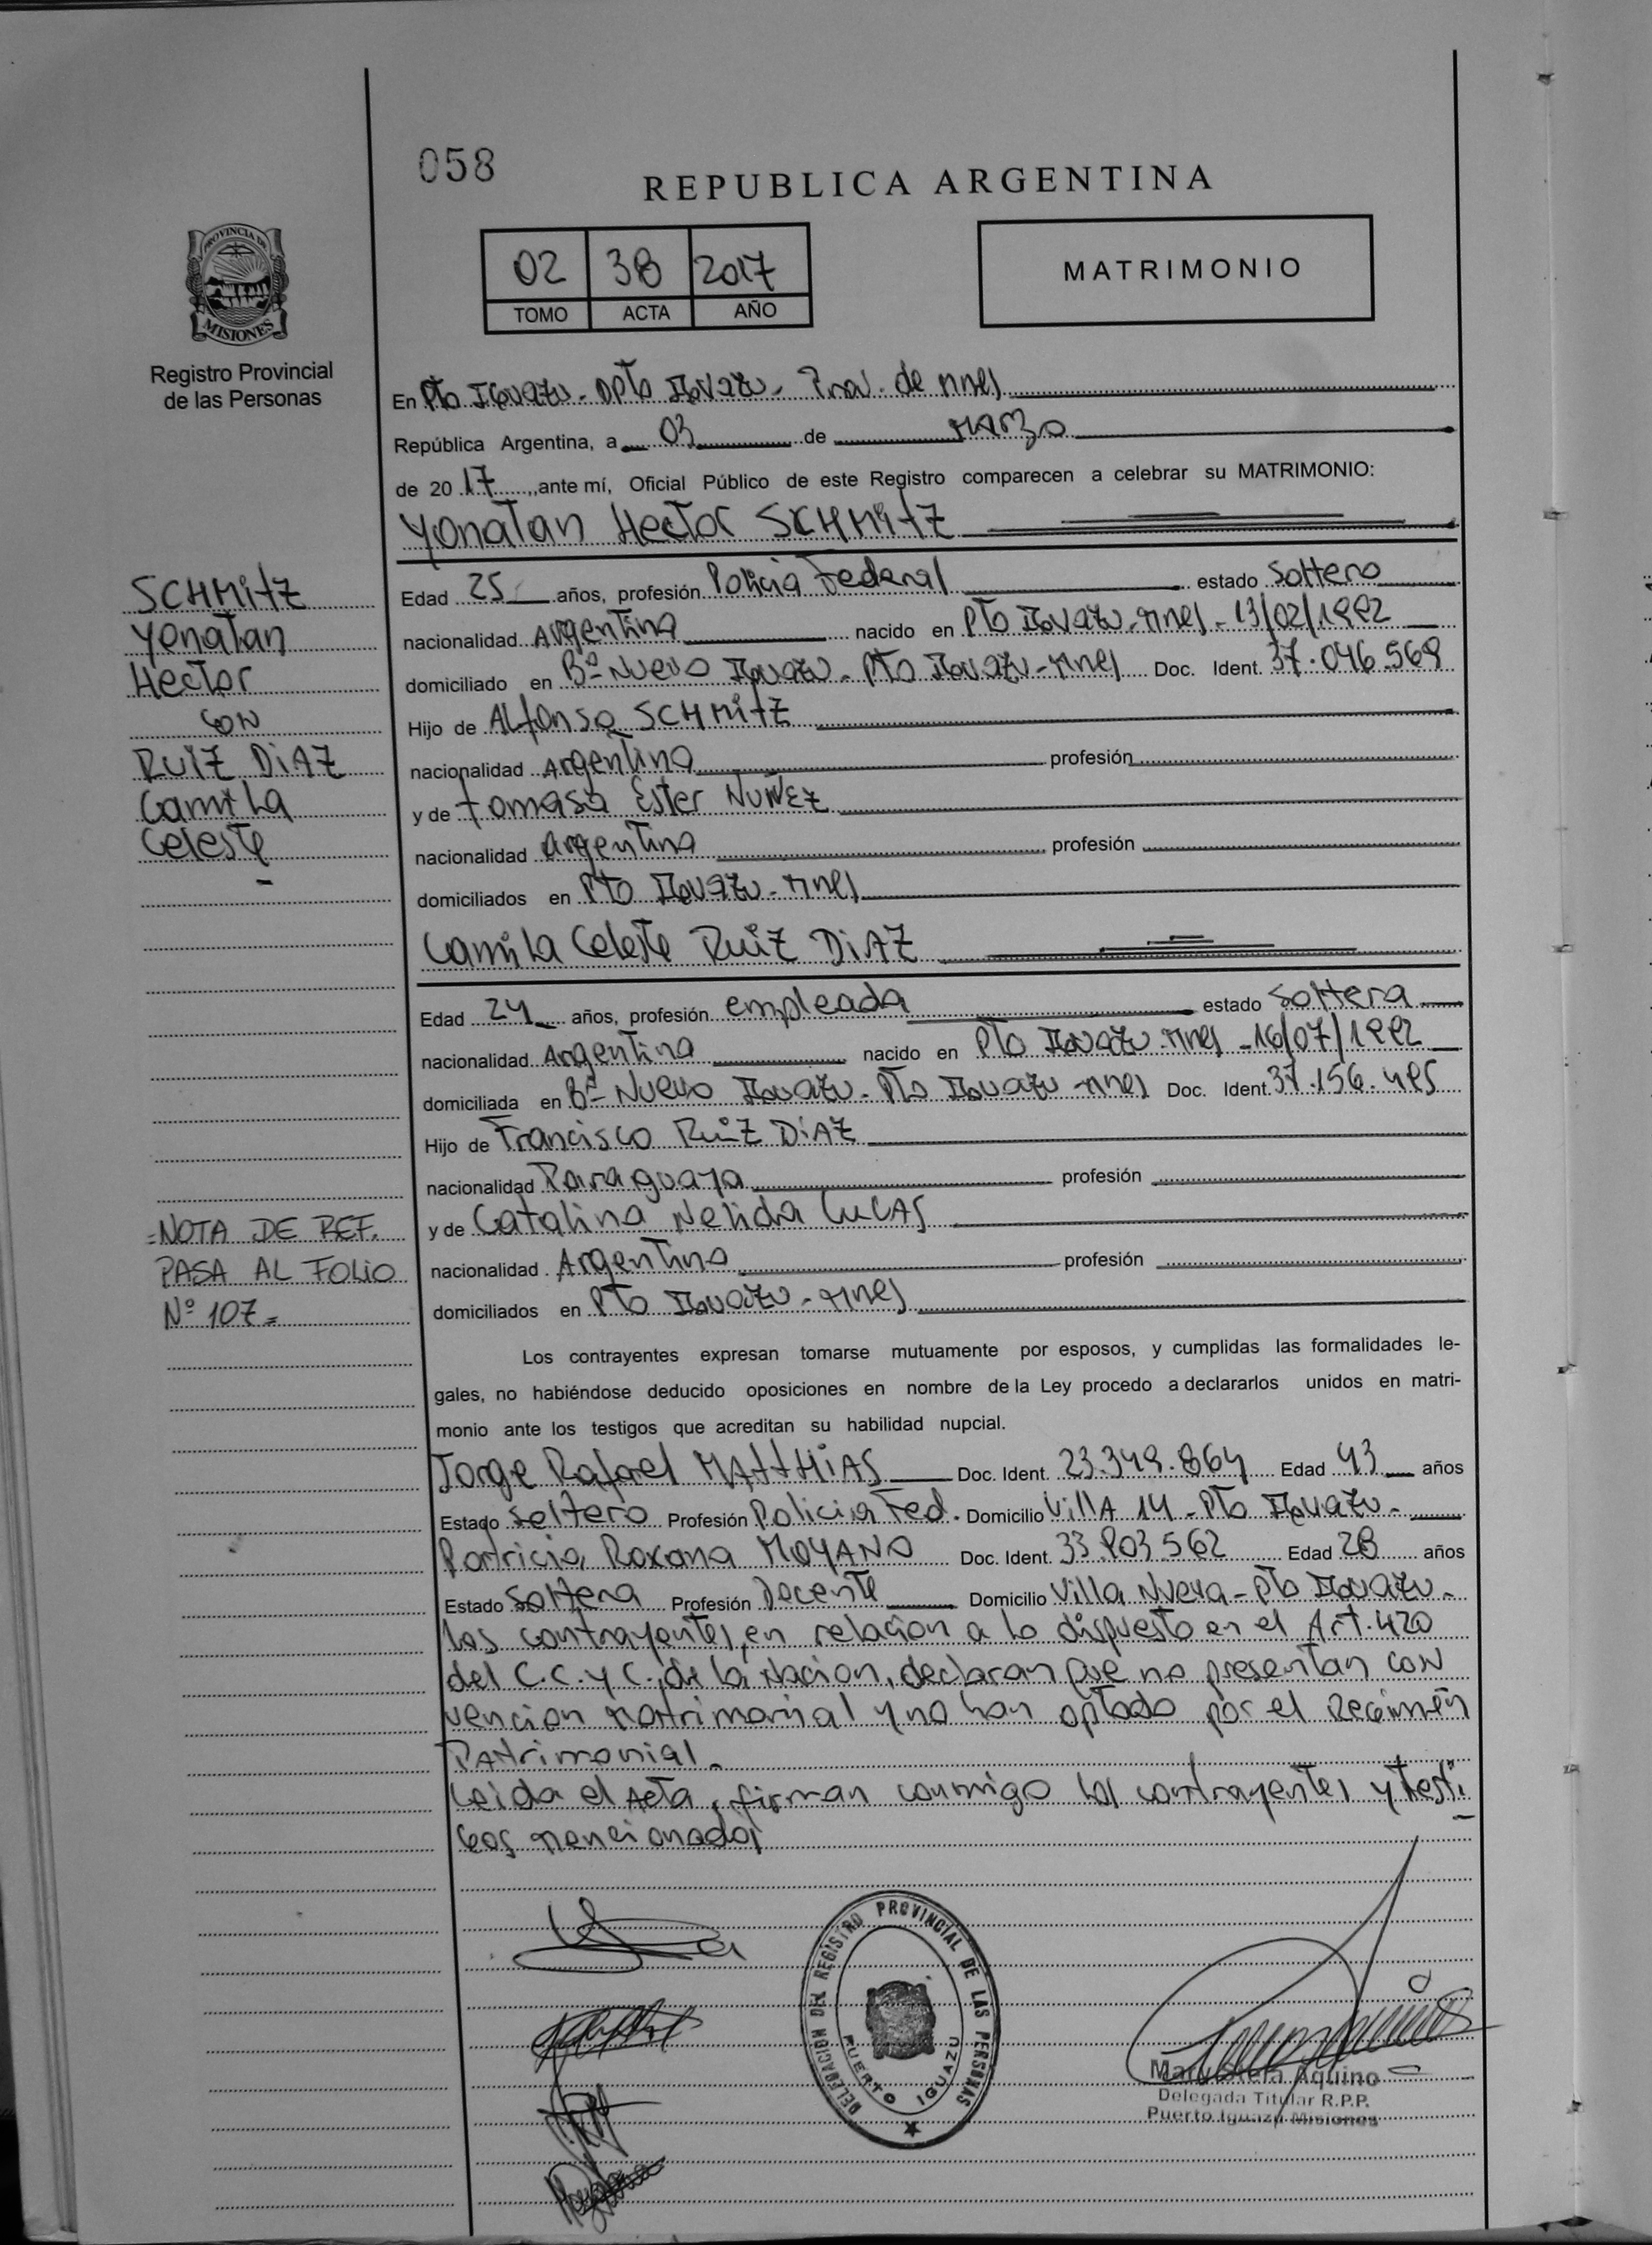 058
REPUBLICA ARGENTINA
02 38 2017
TOMO ACTA AÑO
MATRIMONIO
PROVINCIA DE
MISIONES
Registro Provincial
de las Personas
En Pto Iguazu - Dpto Iguazu - Prov. de Mnes
República Argentina, a 03 de Marzo
de 20 17 , ante mí, Oficial Público de este Registro comparecen a celebrar su MATRIMONIO:
Yonatan Hector SCHMitZ
Edad 25 años, profesión Policia Federal estado Soltero
nacionalidad Argentina nacido en Pto Iguazu - Mnes - 13/02/1992
domiciliado en Bº Nuevo Iguazu - Pto Iguazu - Mnes Doc. Ident. 37.046.569
Hijo de Alfonso SCHMitZ
nacionalidad Argentina profesión
y de Tomasa Ester NUÑEZ
nacionalidad Argentina profesión
domiciliados en Pto Iguazu - Mnes
Camila Celeste RUIZ DIAZ
Edad 24 años, profesión empleada estado Soltera
nacionalidad Argentina nacido en Pto Iguazu - Mnes - 16/07/1992
domiciliada en Bº Nuevo Iguazu - Pto Iguazu - Mnes Doc. Ident. 37.156.495
Hijo de Francisco RUIZ DIAZ
nacionalidad Paraguaya profesión
y de Catalina Nelida LUCAS
nacionalidad Argentina profesión
domiciliados en Pto Iguazu - Mnes
Los contrayentes expresan tomarse mutuamente por esposos, y cumplidas las formalidades le-
gales, no habiéndose deducido oposiciones en nombre de la Ley procedo a declararlos unidos en matri-
monio ante los testigos que acreditan su habilidad nupcial.
Jorge Rafael MATTHIAS Doc. Ident. 23.349.864 Edad 43 años
Estado Soltero Profesión Policia Fed. Domicilio Villa 14 - Pto Iguazu -
Patricia Roxana MOYANO Doc. Ident. 33.903.562 Edad 28 años
Estado Soltera Profesión Docente Domicilio Villa Nueva - Pto Iguazu -
Los contrayentes, en relacion a lo dispuesto en el Art. 420
del C.C. y C. de la Nacion, declaran que no presentan con
vencion matrimonial y no han optado por el Regimen
Patrimonial.
Leida el Acta, firman conmigo los contrayentes y testi
gos mencionados
SCHMitZ
Yonatan
Hector
con
RUIZ DIAZ
Camila
Celeste
=NOTA DE REF.
PASA AL FOLIO
Nº 107=
DELEGACION DEL REGISTRO PROVINCIAL DE LAS PERSONAS
PUERTO IGUAZU
Mary Stela Aquino
Delegada Titular R.P.P.
Puerto Iguazú Misiones